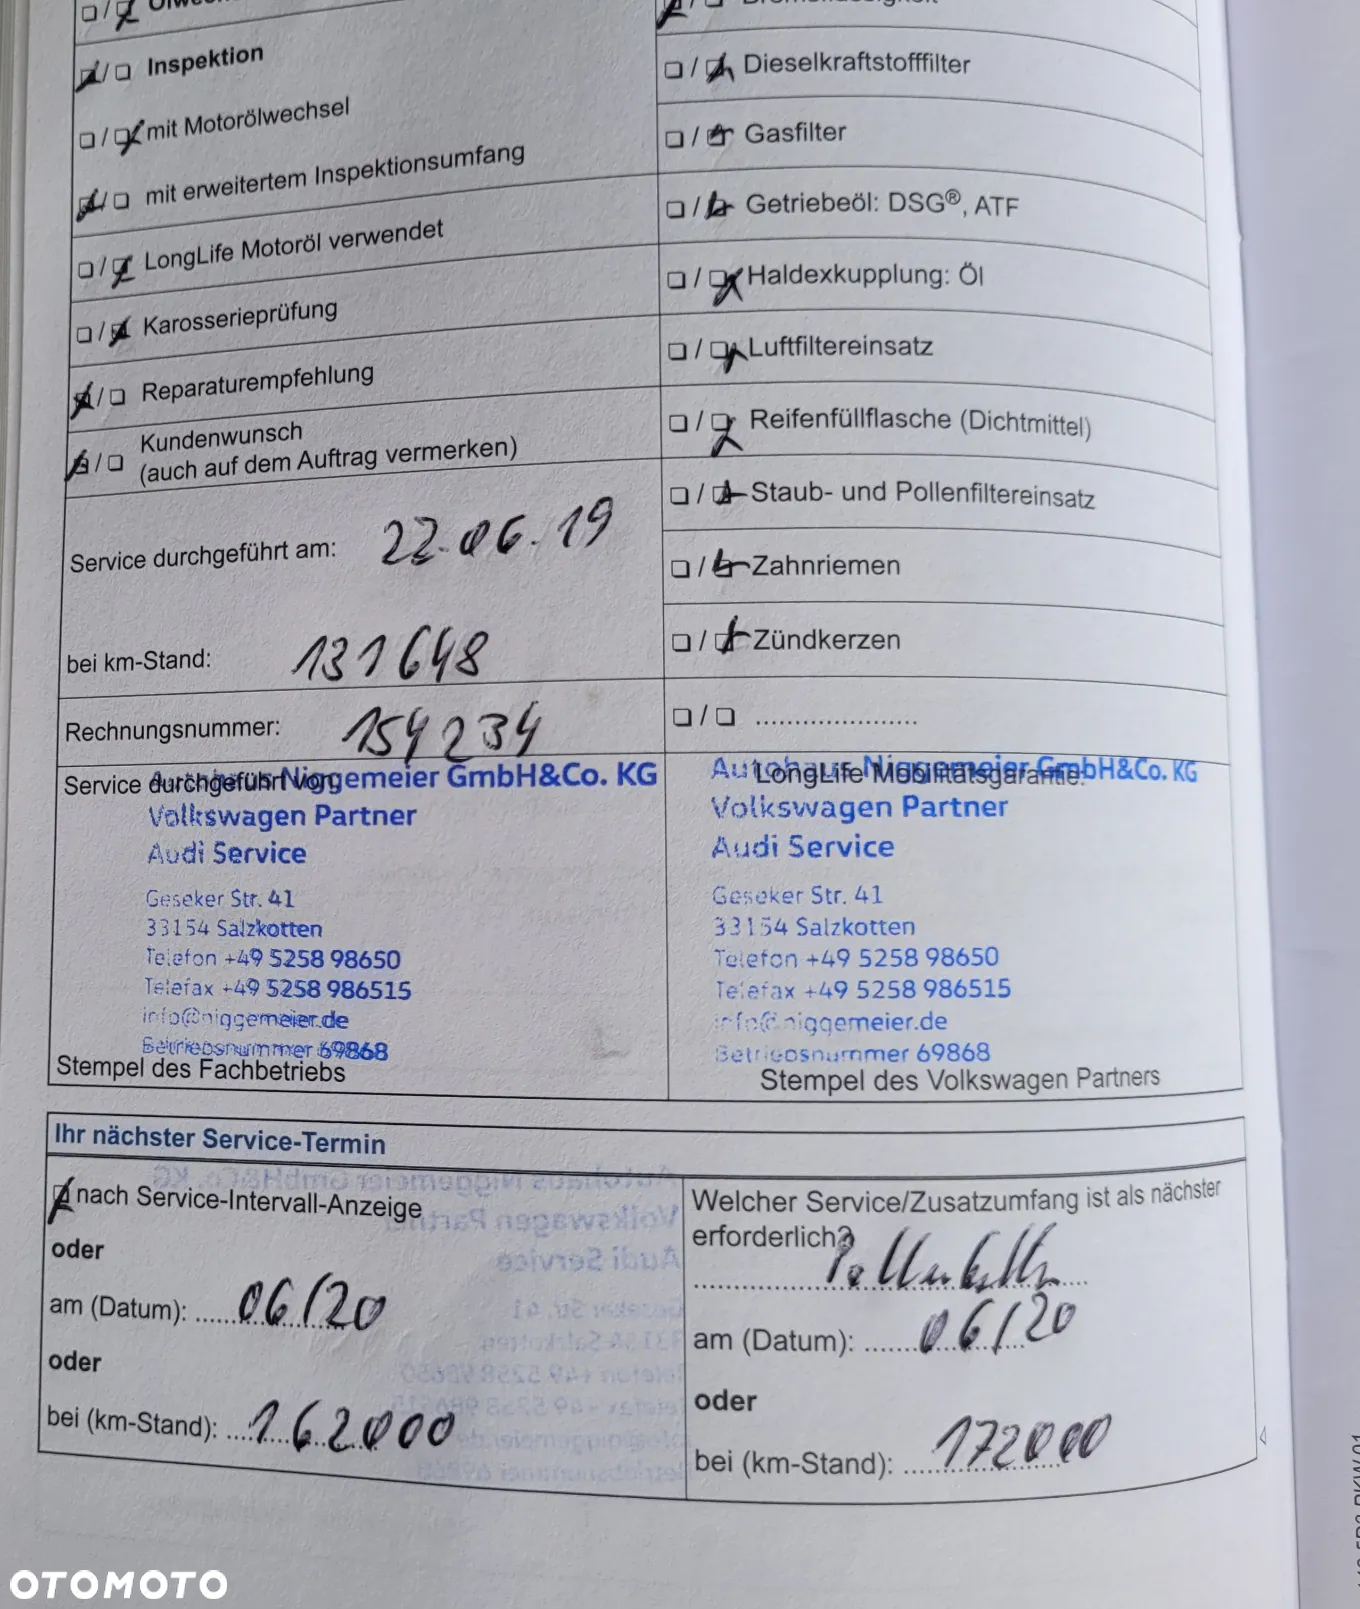 Inspektion
mit Motorölwechsel
mit erweitertem Inspektionsumfang
LongLife Motoröl verwendet
Karosserieprüfung
Reparaturempfehlung
Kundenwunsch
(auch auf dem Auftrag vermerken)
Service durchgeführt am: 22.06.19
bei km-Stand: 131648
Rechnungsnummer: 154234
Dieselkraftstofffilter
Gasfilter
Getriebeöl: DSG®, ATF
Haldexkupplung: Öl
Luftfiltereinsatz
Reifenfüllflasche (Dichtmittel)
Staub- und Pollenfiltereinsatz
Zahnriemen
Zündkerzen
Service durchgeführt von:
Autohaus Niggemeier GmbH&Co. KG
Volkswagen Partner
Audi Service
Geseker Str. 41
33154 Salzkotten
Telefon +49 5258 98650
Telefax +49 5258 986515
info@niggemeier.de
Betriebsnummer 69868
Stempel des Fachbetriebs
LongLife Mobilitätsgarantie:
Autohaus Niggemeier GmbH&Co. KG
Volkswagen Partner
Audi Service
Geseker Str. 41
33154 Salzkotten
Telefon +49 5258 98650
Telefax +49 5258 986515
info@niggemeier.de
Betriebsnummer 69868
Stempel des Volkswagen Partners
Ihr nächster Service-Termin
nach Service-Intervall-Anzeige
oder
am (Datum): 06/20
oder
bei (km-Stand): 162000
Welcher Service/Zusatzumfang ist als nächster
erforderlich?
am (Datum): 06/20
oder
bei (km-Stand): 172000
OTOMOTO